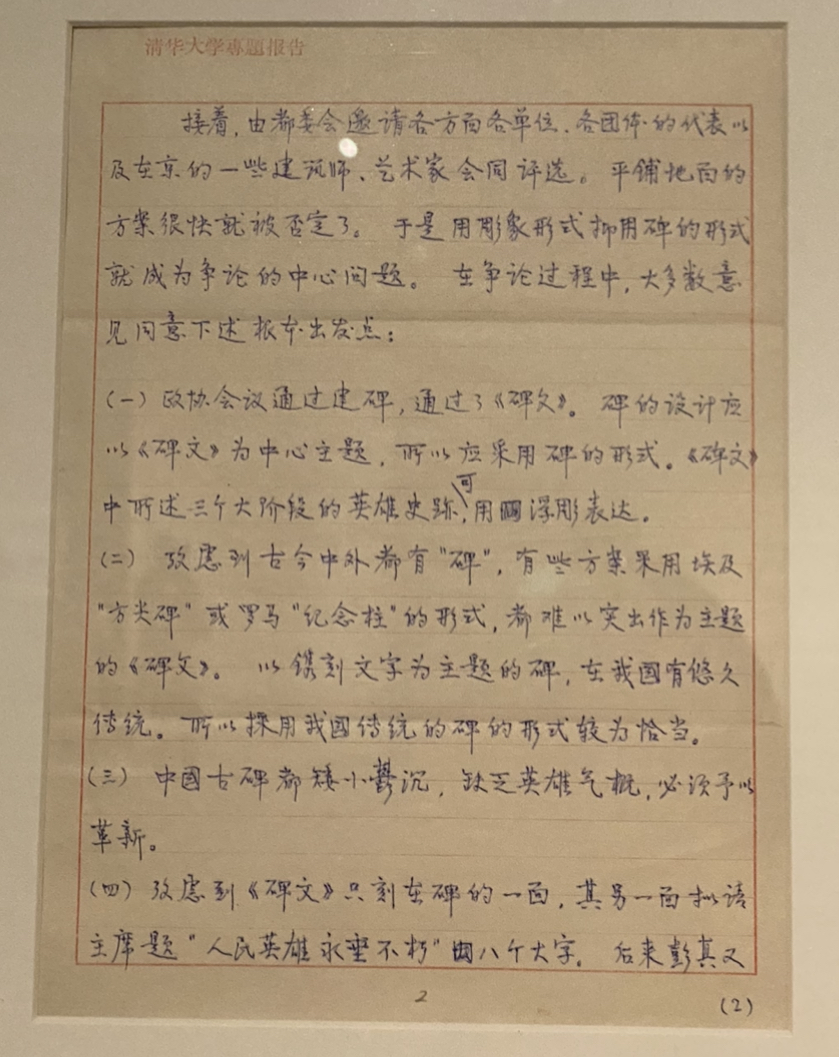 清华大学專題报告
接着，由都委会邀请各方面各单位、各团体的代表以
及在京的一些建筑师、艺术家会同评选。平铺地面的
方案很快就被否定了。于是用彫象形式抑用碑的形式
就成为争论的中心问题。在争论过程中，大多数意
见同意下述根本出发点：
（一）政协会议通过建碑，通过了《碑文》。碑的设计应
以《碑文》为中心主题，所以应采用碑的形式。《碑文》
可
中所述三个大阶段的英雄史跡，用浮彫表达。
（二）攷虑到古今中外都有"碑"，有些方案采用埃及
"方尖碑"或罗马"纪念柱"的形式，都难以突出作为主题
的《碑文》。以镌刻文字为主题的碑，在我國有悠久
传统。所以採用我國传统的碑的形式较为恰当。
（三）中國古碑都矮小鬱沉，缺乏英雄气概，必须予以
革新。
（四）攷虑到《碑文》只刻在碑的一面，其另一面拟请
主席题"人民英雄永垂不朽"八个大字。后来彭真又
2
（2）